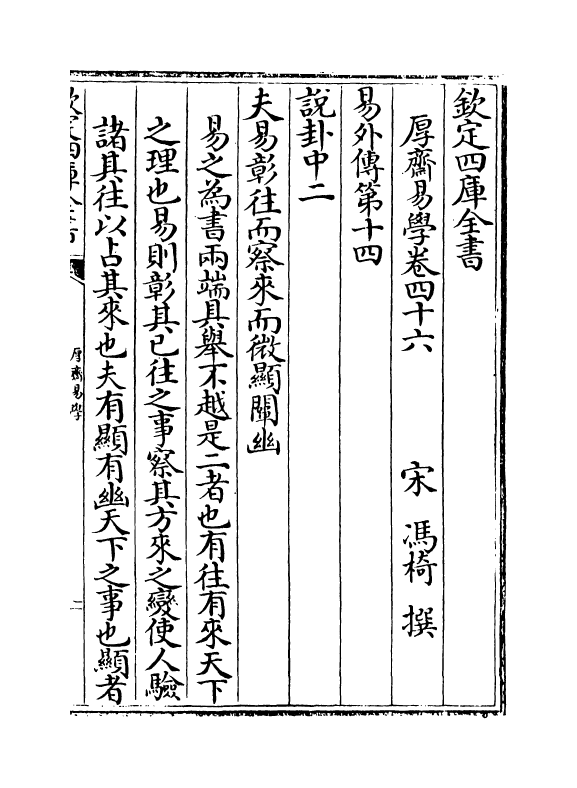 欽定四庫全書
厚齋易學卷四十六
宋 馮椅 撰
易外傳第十四
說卦中二
夫易彰往而察來而微顯闡幽
易之為書兩端具舉不越是二者也有往有來天下
之理也易則彰其已往之事察其方來之變使人驗
諸其往以占其來也夫有顯有幽天下之事也顯者
厚齋易學